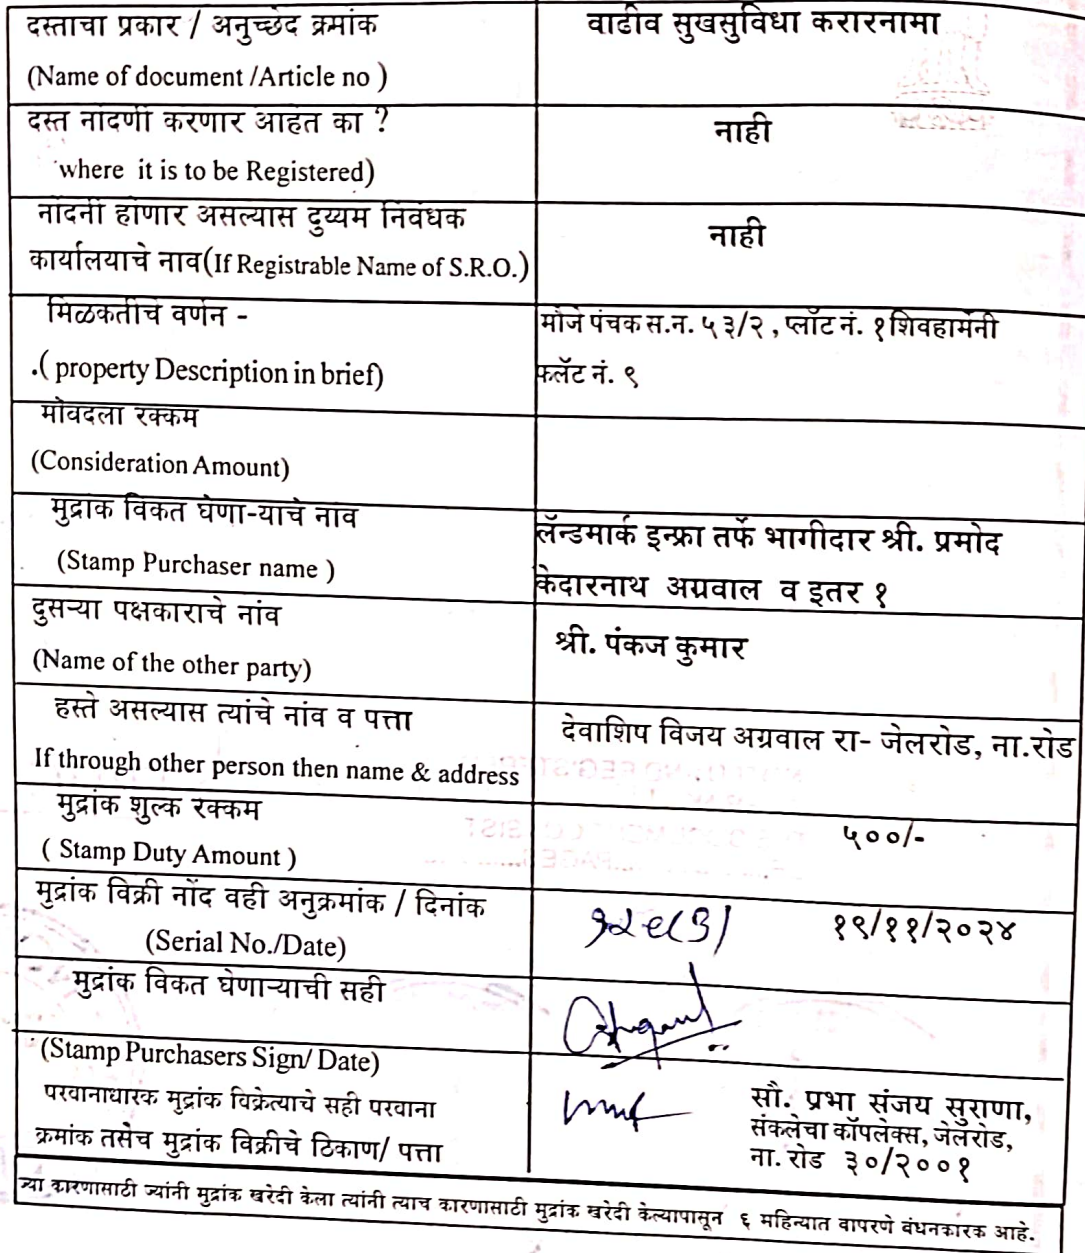 दस्ताचा प्रकार / अनुच्छेद क्रमांक
वाढीव सुखसुविधा करारनामा
(Name of document /Article no )
दस्त नोंदणी करणार आहेत का ?
नाही
where it is to be Registered)
नोंदनी होणार असल्यास दुय्यम निबंधक
कार्यालयाचे नाव(If Registrable Name of S.R.O.)
नाही
मिळकतीचे वर्णन -
(property Description in brief)
मौजे पंचक स.न. ५३/२ , प्लॉट नं. १ शिवहार्मनी
फलॅट नं. ९
मोबदला रक्कम
(Consideration Amount)
मुद्रांक विकत घेणा-याचे नांव
(Stamp Purchaser name )
लॅन्डमार्क इन्फ्रा तर्फे भागीदार श्री. प्रमोद
केदारनाथ अग्रवाल व इतर १
दुसऱ्या पक्षकाराचे नांव
(Name of the other party)
श्री. पंकज कुमार
हस्ते असल्यास त्यांचे नांव व पत्ता
If through other person then name & address
देवाशिष विजय अग्रवाल रा- जेलरोड, ना.रोड
मुद्रांक शुल्क रक्कम
( Stamp Duty Amount )
५००/-
मुद्रांक विक्री नोंद वही अनुक्रमांक / दिनांक
(Serial No./Date)
१९/११/२०२४
मुद्रांक विकत घेणाऱ्याची सही
(Stamp Purchasers Sign/ Date)
परवानाधारक मुद्रांक विक्रेत्याचे सही परवाना
क्रमांक तसेच मुद्रांक विक्रीचे ठिकाण/ पत्ता
सौ. प्रभा संजय सुराणा,
संकलेचा कॉपलेक्स, जेलरोड,
ना. रोड ३०/२००१
ज्या कारणासाठी ज्यांनी मुद्रांक खरेदी केला त्यांनी त्याच कारणासाठी मुद्रांक खरेदी केल्यापासून ६ महिन्यात वापरणे बंधनकारक आहे.